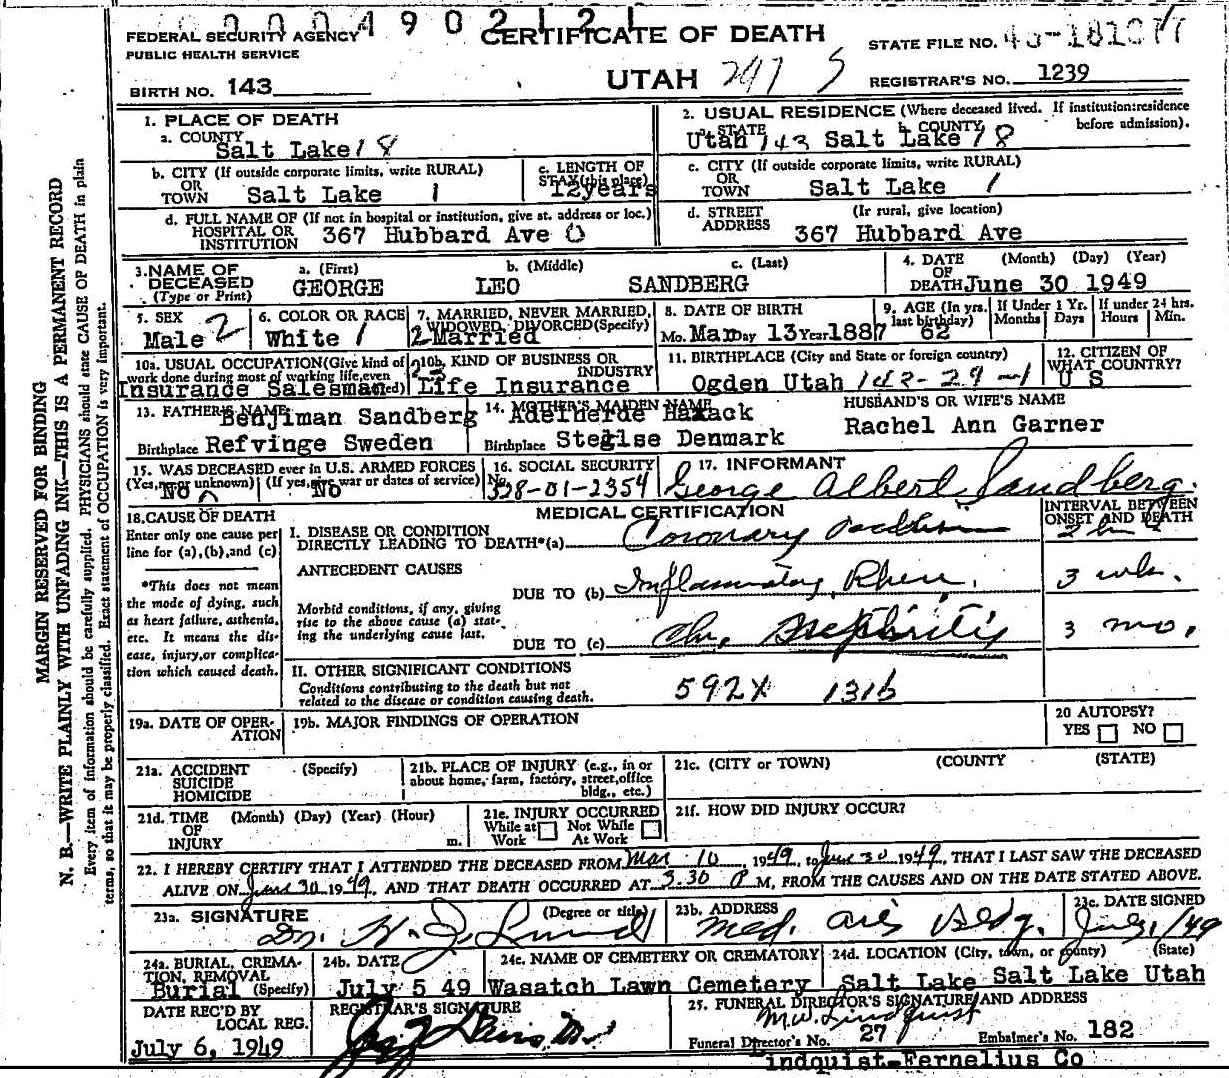 2 0 0 4 9 0 2 1 2 1
FEDERAL SECURITY AGENCY
PUBLIC HEALTH SERVICE
BIRTH NO. 143
CERTIFICATE OF DEATH
UTAH 247 S
STATE FILE NO.
REGISTRAR'S NO. 1239
1. PLACE OF DEATH
a. COUNTY
Salt Lake 18
2. USUAL RESIDENCE (Where deceased lived. If institution: residence before admission).
a. STATE b. COUNTY
Utah 143 Salt Lake 18
b. CITY (If outside corporate limits, write RURAL)
OR
TOWN Salt Lake 1
c. LENGTH OF
STAY (this place)
12years
c. CITY (If outside corporate limits, write RURAL)
OR
TOWN Salt Lake 1
d. FULL NAME OF (If not in hospital or institution, give st. address or loc.)
HOSPITAL OR
INSTITUTION 367 Hubbard Ave 0
d. STREET (Ir rural, give location)
ADDRESS 367 Hubbard Ave
3. NAME OF DECEASED (Type or Print)
a. (First) b. (Middle) c. (Last)
GEORGE LEO SANDBERG
4. DATE OF DEATH (Month) (Day) (Year)
June 30 1949
5. SEX
Male 2
6. COLOR OR RACE
White 1
7. MARRIED, NEVER MARRIED, WIDOWED, DIVORCED (Specify)
2 Married
8. DATE OF BIRTH
Mo. Mar Day 13 Year 1887
9. AGE (In yrs. last birthday)
62
If Under 1 Yr. Months Days
If under 24 hrs. Hours Min.
10a. USUAL OCCUPATION (Give kind of work done during most of working life, even if retired)
Insurance Salesman
10b. KIND OF BUSINESS OR INDUSTRY
Life Insurance
11. BIRTHPLACE (City and State or foreign country)
Ogden Utah 143-29-1
12. CITIZEN OF WHAT COUNTRY?
U S
13. FATHER'S NAME
Benjiman Sandberg
Birthplace Refvinge Sweden
14. MOTHER'S MAIDEN NAME
Birthplace Steglse Denmark
HUSBAND'S OR WIFE'S NAME
Rachel Ann Garner
15. WAS DECEASED ever in U.S. ARMED FORCES
(Yes, no or unknown) (If yes, give war or dates of service)
No No
16. SOCIAL SECURITY No.
328-01-2354
17. INFORMANT
George Albert Sandberg.
MEDICAL CERTIFICATION
INTERVAL BETWEEN ONSET AND DEATH
18. CAUSE OF DEATH
Enter only one cause per line for (a), (b), and (c)
I. DISEASE OR CONDITION
DIRECTLY LEADING TO DEATH*(a) Coronary
*This does not mean the mode of dying, such as heart failure, asthenia, etc. It means the disease, injury, or complication which caused death.
ANTECEDENT CAUSES
DUE TO (b) Inflammatory Rheu. 3 wk.
Morbid conditions, if any, giving rise to the above cause (a) stating the underlying cause last.
DUE TO (c) Chr. Nephritis 3 mo.
II. OTHER SIGNIFICANT CONDITIONS
Conditions contributing to the death but not related to the disease or condition causing death.
592X 131b
19a. DATE OF OPERATION
19b. MAJOR FINDINGS OF OPERATION
20 AUTOPSY?
YES NO
21a. ACCIDENT SUICIDE HOMICIDE (Specify)
21b. PLACE OF INJURY (e.g., in or about home, farm, factory, street, office bldg., etc.)
21c. (CITY or TOWN) (COUNTY (STATE)
21d. TIME OF INJURY (Month) (Day) (Year) (Hour) m.
21e. INJURY OCCURRED
While at Work Not While At Work
21f. HOW DID INJURY OCCUR?
22. I HEREBY CERTIFY THAT I ATTENDED THE DECEASED FROM Mar 10, 1949, to June 30 1949, THAT I LAST SAW THE DECEASED
ALIVE ON June 30 1949, AND THAT DEATH OCCURRED AT 3.30 P M, FROM THE CAUSES AND ON THE DATE STATED ABOVE.
23a. SIGNATURE (Degree or title)
Dr. H. J. Lund
23b. ADDRESS
Med. Arts Bldg.
23c. DATE SIGNED
24a. BURIAL, CREMATION, REMOVAL (Specify)
Burial
24b. DATE
July 5 49
24c. NAME OF CEMETERY OR CREMATORY
Wasatch Lawn Cemetery
24d. LOCATION (City, town, or county) (State)
Salt Lake Salt Lake Utah
DATE REC'D BY LOCAL REG.
July 6, 1949
REGISTRAR'S SIGNATURE
25. FUNERAL DIRECTOR'S SIGNATURE AND ADDRESS
M.W. Lindquist
Funeral Director's No. 27 Embalmer's No. 182
Lindquist-Fernelius Co
MARGIN RESERVED FOR BINDING
N. B.—WRITE PLAINLY WITH UNFADING INK—THIS IS A PERMANENT RECORD
Every item of information should be carefully supplied. PHYSICIANS should state CAUSE OF DEATH in plain
terms, so that it may be properly classified. Exact statement of OCCUPATION is very important.